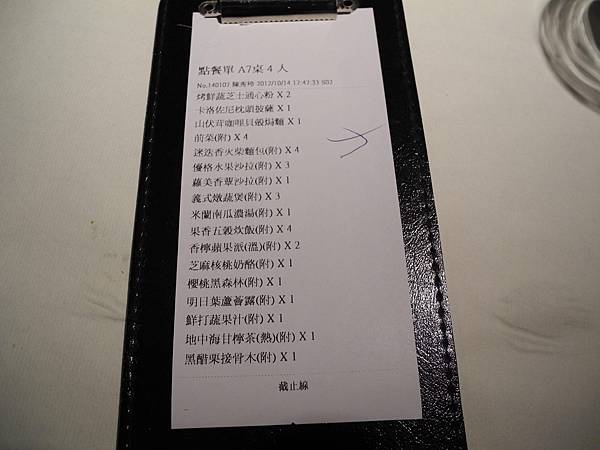 點餐單 A7桌 4 人
烤鮮蔬芝士通心粉 X 2
卡洛佐尼枕頭披薩 X 1
山伏茸咖哩貝殼焗麵 X 1
前菜(附) X 4
迷迭香火柴麵包(附) X 4
優格水果沙拉(附) X 3
蘿美香蕈沙拉(附) X 1
義式燉蔬煲(附) X 3
米蘭南瓜濃湯(附) X 1
果香五穀炊飯(附) X 4
香檸蘋果派(溫)(附) X 2
芝麻核桃奶酪(附) X 1
櫻桃黑森林(附) X 1
明日葉蘆薈露(附) X 1
鮮打蔬果汁(附) X 1
地中海甘檸茶(熱)(附) X 1
黑醋栗接骨木(附) X 1
截止線